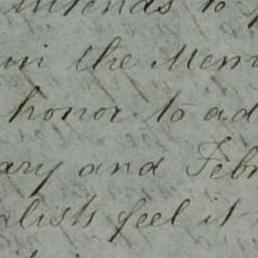 intends to
in the Mem
honor to ad
ary and Feb
alists feel it